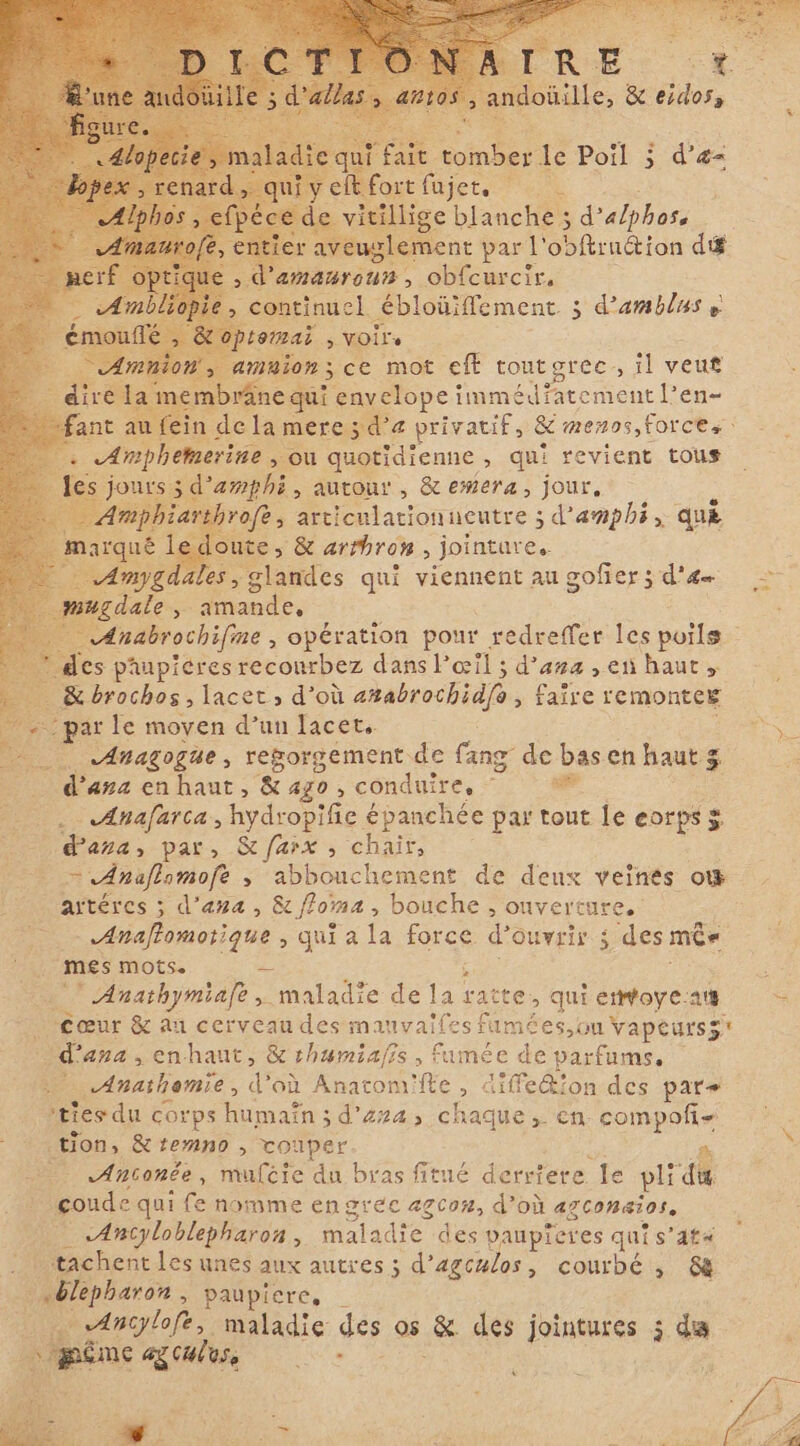 DICTIONAIRE
d'une andoüille ; d'allas, antos, andoüille, & eidos,
figure.
Alopecie, maladie qui fait tomber le Poil ; d'a-
lopex, renard, qui y eſt fort ſujet.
Alphos, eſpéce de vitillige blanche ; d'alphos.
Amauroſe, entier aveuglement par l'obſtruction du
nerf optique, d'amauroun, obſcurcir.
Ambliopie, continuel ébloüiſſement ; d'amblus,
émouſſé, & optomai, voir.
Amnion, amnion ; ce mot eſt tout grec, il veut
dire la membrâne qui envelope immédiatement l'en-
fant au ſein de la mere ; d'a privatif, & menos, force.
Amphemerine, ou quotidienne, qui revient tous
les jours ; d'amphi, autour, & emera, jour.
Amphiarthroſe, articulation neutre ; d'amphi, qui
marquè le doute, & arthron, jointure.
Amygdales, glandes qui viennent au goſier ; d'a-
mugdale, amande.
Anabrochiſme, opération pour redreſſer les poils
des paupiéres recourbez dans l'œil ; d'ana, en haut,
& brochos, lacet, d'où anabrochidſo, faire remonter
par le moyen d'un lacet.
Anagogue, regorgement de ſang de bas en haut ;
d'ana en haut, & ago, conduire.
Anaſarca, hydropiſie épanchée par tout le corps ;
d'ana, par, & ſarx, chair,
Anaſtomoſe, abbouchement de deux veines ou
artéres ; d'ana, & ſtoma, bouche, ouverture.
Anaſtomotique, qui a la force d'ouvrir ; des mê-
mes mots.
Anathymiaſe, maladie de la ratte, qui envoye au
cœur & au cerveau des mauvaiſes fumées, ou vapeurs ;
d'ana, en haut, & thumiaſis, fumée de parfums.
Anathomie, d'où Anatomiſte, diſſection des par-
ties du corps humain ; d'ana, chaque, en compoſi-
tion, & temno, couper.
Anconée, muſcle du bras ſitué derriere le pli du
coude qui ſe nomme en grec agcon, d'où agconaios.
Ancyloblepharon, maladie des paupieres qui s'at-
tachent les unes aux autres ; d'agculos, courbé, &
blepharon, paupiere.
Ancyloſe, maladie des os & des jointures ; du
même agculos.